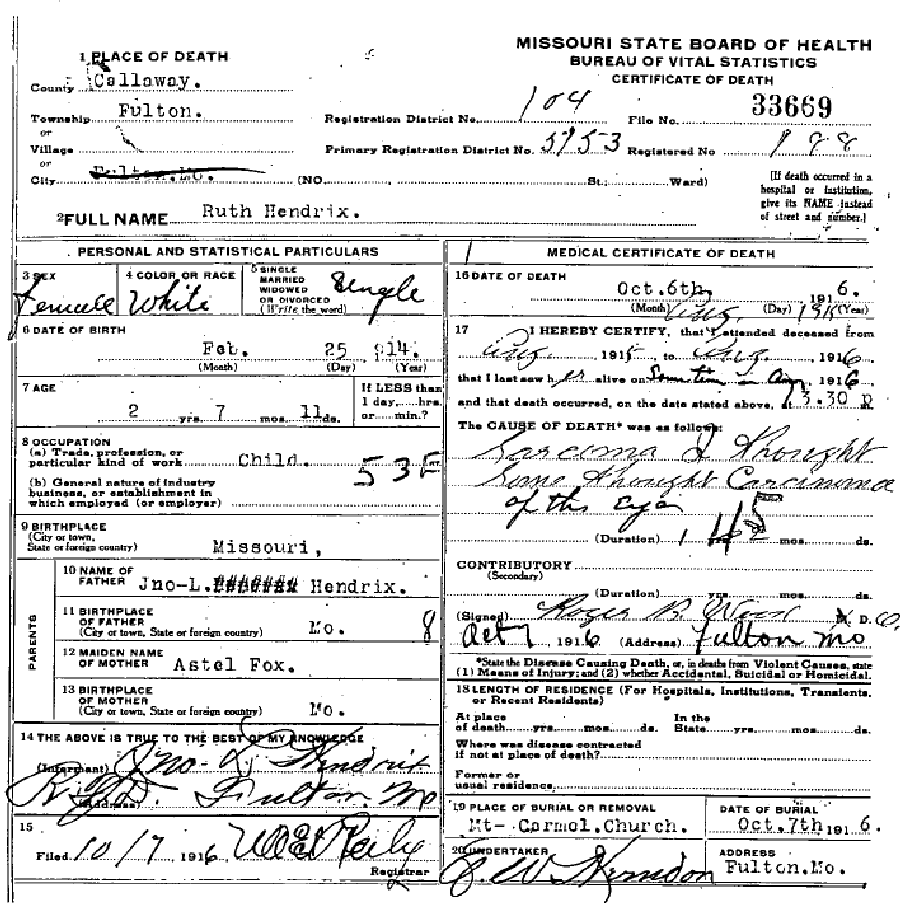 MISSOURI STATE BOARD OF HEALTH
BUREAU OF VITAL STATISTICS
CERTIFICATE OF DEATH
1 PLACE OF DEATH
County Callaway.
Township Fulton.
or
Village
or
City Fulton.Mo. (NO. St.; Ward)
Registration District No. 104 File No. 33669
Primary Registration District No. 5153 Registered No 188
[If death occurred in a
hospital or institution,
give its NAME instead
of street and number.]
2 FULL NAME Ruth Hendrix.
PERSONAL AND STATISTICAL PARTICULARS
3 SEX Female
4 COLOR OR RACE White
5 SINGLE
MARRIED
WIDOWED
OR DIVORCED
(Write the word)
Single
6 DATE OF BIRTH
Feb. 25 914.
(Month) (Day) (Year)
7 AGE
2 yrs. 7 mos. 11 ds.
If LESS than
1 day, hrs.
or min.?
8 OCCUPATION
(a) Trade, profession, or
particular kind of work Child.
(b) General nature of industry
business, or establishment in
which employed (or employer)
53E
9 BIRTHPLACE
(City or town,
State or foreign country) Missouri,
PARENTS
10 NAME OF
FATHER Jno-L.####### Hendrix.
11 BIRTHPLACE
OF FATHER
(City or town, State or foreign country) Mo. 8
12 MAIDEN NAME
OF MOTHER Astel Fox.
13 BIRTHPLACE
OF MOTHER
(City or town, State or foreign country) Mo.
14 THE ABOVE IS TRUE TO THE BEST OF MY KNOWLEDGE
(Informant) Jno-L Hendrix
(Address) Fulton Mo
15
Filed 10/7 1916
Registrar
MEDICAL CERTIFICATE OF DEATH
16 DATE OF DEATH
Oct.6th 1916.
(Month) (Day) (Year)
Aug 1915
17 I HEREBY CERTIFY, that I attended deceased from
Aug. 1915 to Aug. 1916
that I last saw her alive on Sometime in Aug, 1916
and that death occurred, on the date stated above, at 3.30 P
The CAUSE OF DEATH* was as follows:
Sarcoma I thought
Some thought Carcinoma
of the eye
45
(Duration) 1 2 mos. ds.
CONTRIBUTORY
(Secondary)
(Duration) yrs. mos. ds.
(Signed) M. D.
Oct 7 1916 (Address) Fulton Mo
*State the Disease Causing Death, or, in deaths from Violent Causes, state
(1) Means of Injury; and (2) whether Accidental, Suicidal or Homicidal.
18 LENGTH OF RESIDENCE (For Hospitals, Institutions, Transients,
or Recent Residents)
At place
of death yrs. mos. ds. In the
State yrs. mos. ds.
Where was disease contracted
if not at place of death?
Former or
usual residence
19 PLACE OF BURIAL OR REMOVAL
Mt- Carmol.Church.
DATE OF BURIAL
Oct.7th 1916.
20 UNDERTAKER
ADDRESS
Fulton.Mo.